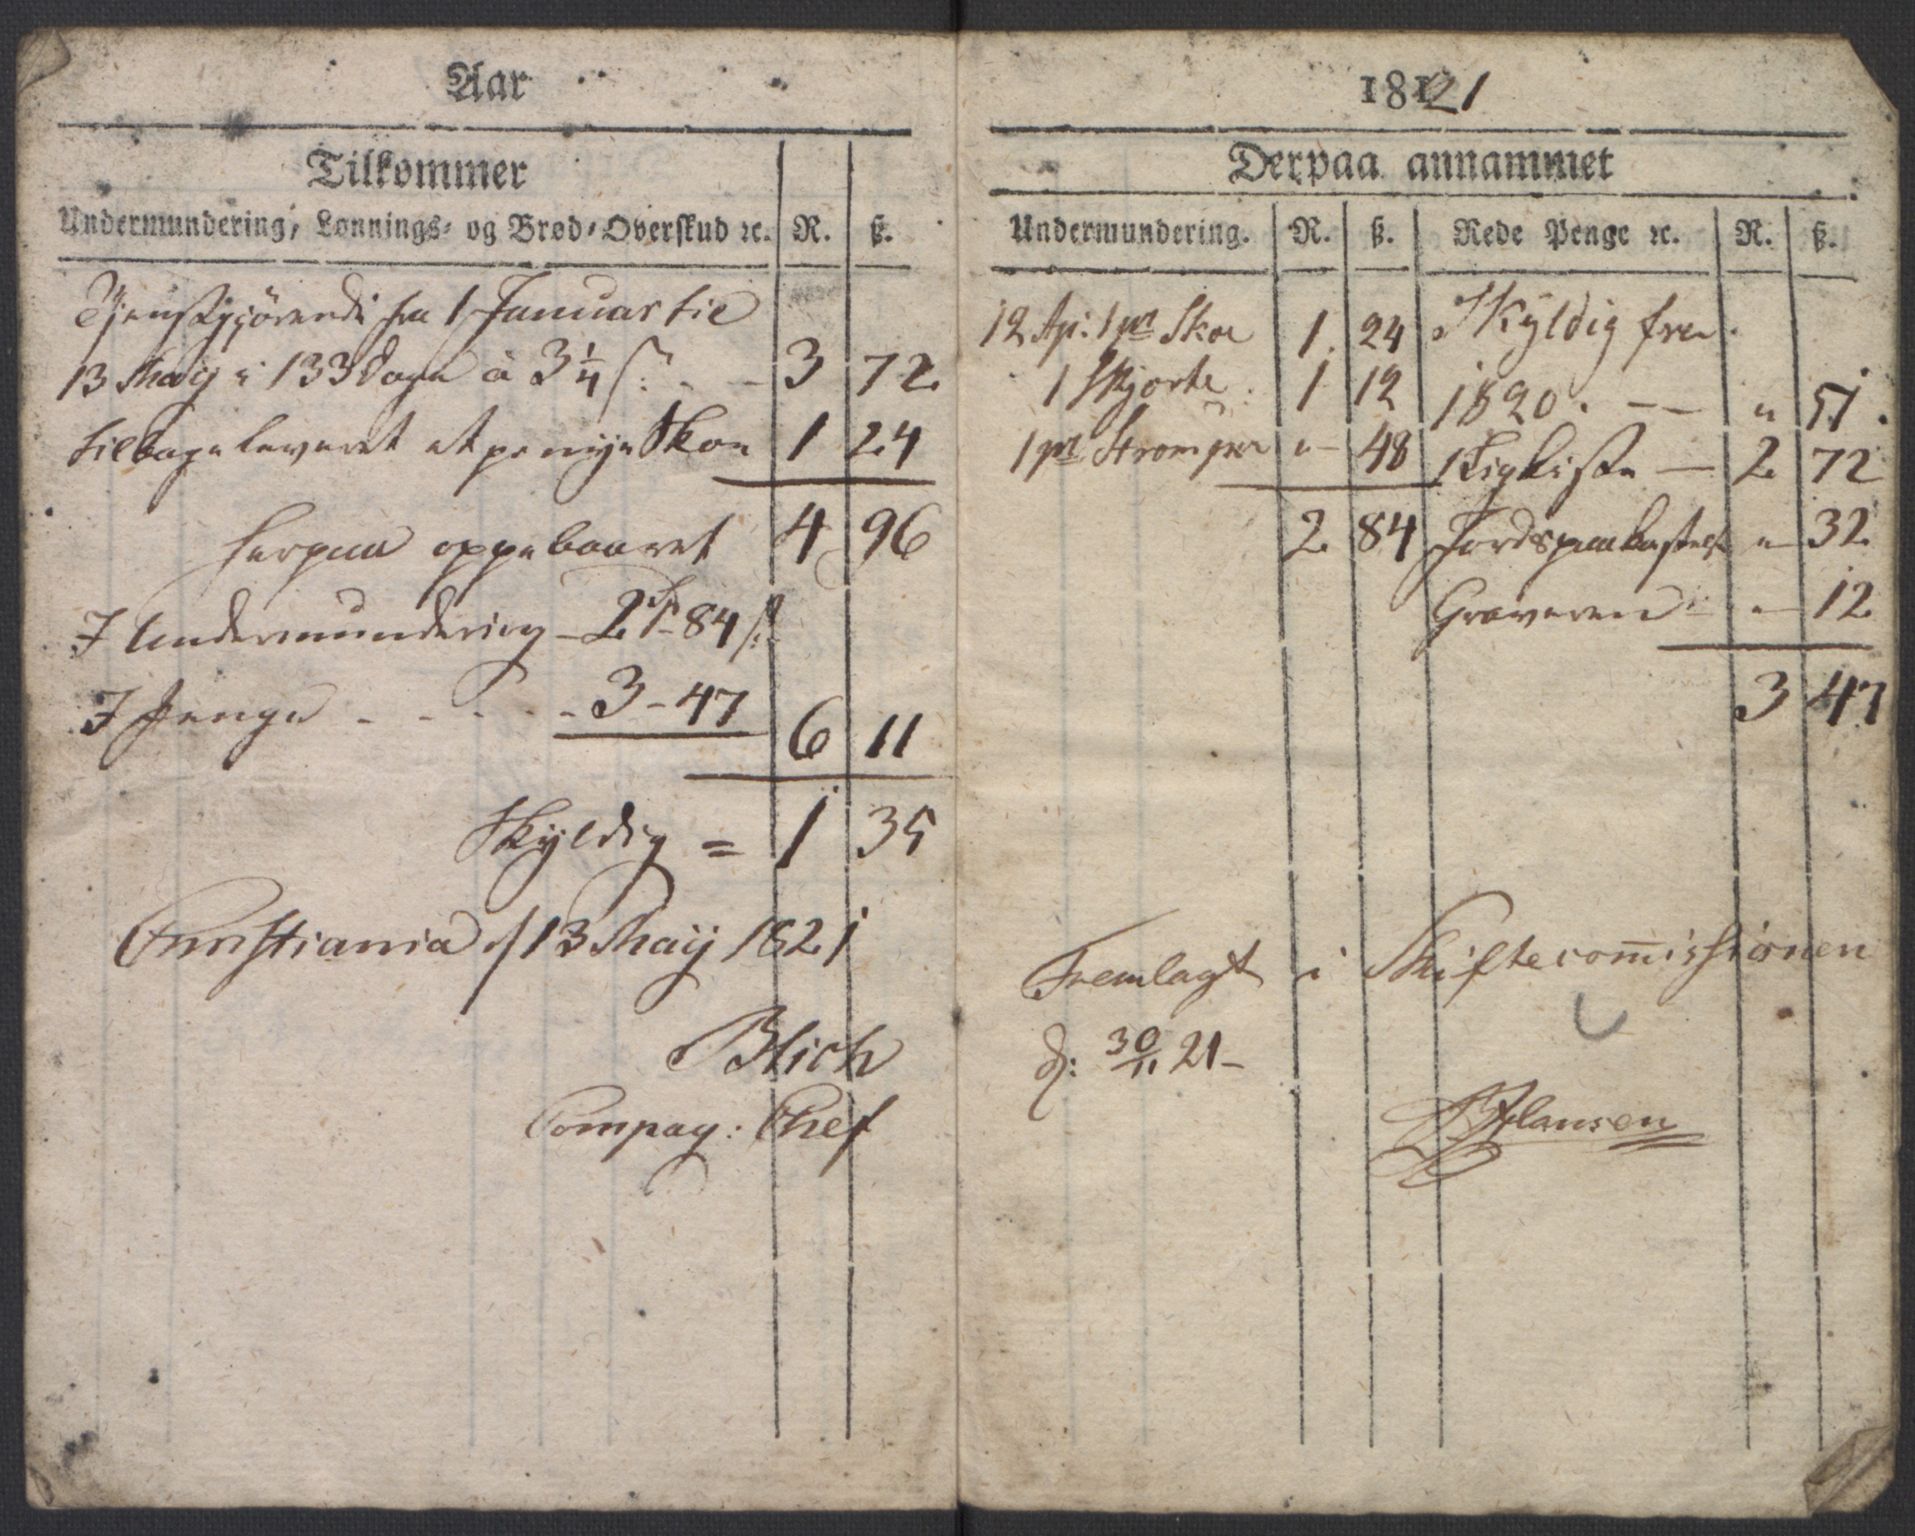 Aar
Tilkommer
Undermundering, Lonnings- og Brod-Overskud ꝛc. R. ß.
Tjenstgjörende fra 1 Januar til
13 Maÿ i 133 Dage à 3¼ s: - - 3 72
tilbageleveret et pr nÿe Skoe 1 24
herpaa oppebaaret 4 96
I Undermundering - 2 - 84 s:
I Penge - - - - - 3 - 47 6 11
Skÿldig = 1 35
Christiania d 13 Maÿ 1821
Blich
Compag: Chef
1821
Derpaa annammet
Undermundering. R. ß. Rede Penge ꝛc. R. ß.
12 Ap: 1 pr Skoe 1 24 Skÿldig fra
1 Skjorte 1 12 1820. - - " 51.
1 pr Strømper " - 48 1 Ligkiste - 2 72
2 84 Jordspaakastelse " - 32
Graveren " - 12
3 47
Fremlagt i Skiftecom̅issionen
d: 30/11 21 -
Hansen